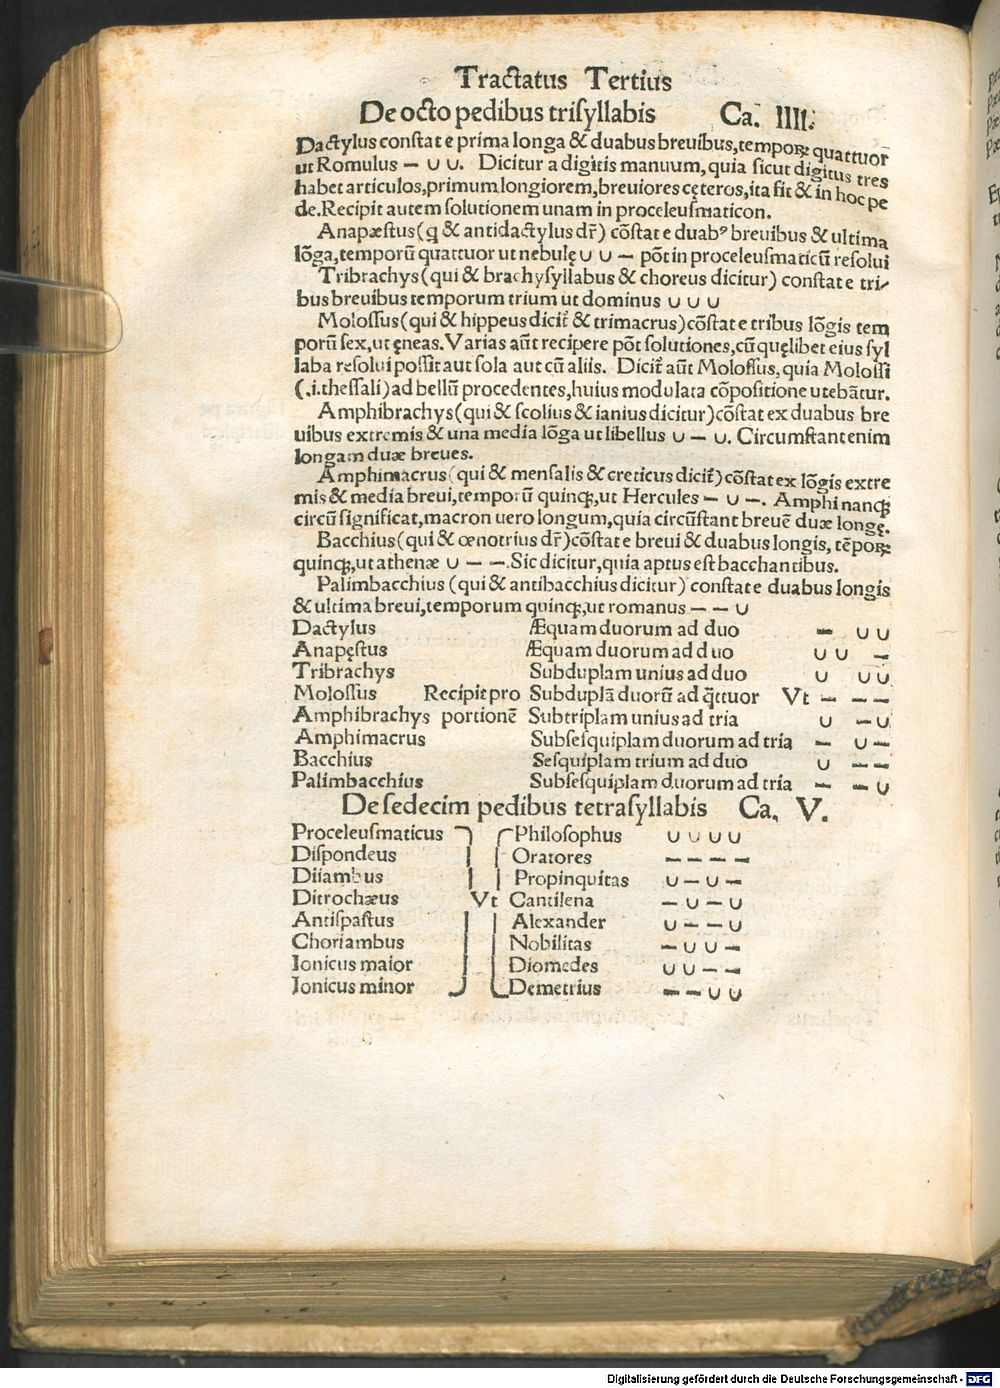 Tractatus Tertius
De octo pedibus trisyllabis Ca. IIII.
Dactylus constat e prima longa & duabus breuibus, temporꝝ quattuor
ut Romulus – ∪ ∪. Dicitur a digitis manuum, quia sicut digitus tres
habet articulos, primum longiorem, breuiores cęteros, ita fit & in hoc pe
de. Recipit autem solutionem unam in proceleusmaticon.
Anapæstus (q & antidactylus dr̄) cōstat e duabꝰ breuibus & ultima
lōga, temporū quattuor ut nebulę ∪ ∪ – pōt in proceleusmaticū resolui
Tribrachys (qui & brachysyllabus & choreus dicitur) constat e tri-
bus breuibus temporum trium ut dominus ∪ ∪ ∪
Molossus (qui & hippeus dicit̄ & trimacrus) cōstat e tribus lōgis tem
porū sex, ut ęneas. Varias aūt recipere pōt solutiones, cū quęlibet eius syl
laba resolui possit aut sola aut cū aliis. Dicit̄ aūt Molossus, quia Molossi
(.i. thessali) ad bellū procedentes, huius modulata cōpositione utebātur.
Amphibrachys (qui & scolius & ianius dicitur) cōstat ex duabus bre
uibus extremis & una media lōga ut libellus ∪ – ∪. Circumstant enim
longam duæ breues.
Amphimacrus (qui & mensalis & creticus dicit̄) cōstat ex lōgis extre
mis & media breui, temporū quinqꝫ, ut Hercules – ∪ –. Amphi nanqꝫ
circū significat, macron uero longum, quia circūstant breuē duæ longę.
Bacchius (qui & œnotrius dr̄) cōstat e breui & duabus longis, tēporꝝ
quinqꝫ, ut athenæ ∪ – –. Sic dicitur, quia aptus est bacchantibus.
Palimbacchius (qui & antibacchius dicitur) constat e duabus longis
& ultima breui, temporum quinqꝫ, ut romanus – – ∪
Dactylus Æquam duorum ad duo – ∪ ∪
Anapęstus Æquam duorum ad duo ∪ ∪ –
Tribrachys Subduplam unius ad duo ∪ ∪ ∪
Molossus Recipit pro Subduplā duorū ad q̄ttuor Vt – – –
Amphibrachys portionē Subtriplam unius ad tria ∪ – ∪
Amphimacrus Subsesquiplam duorum ad tria – ∪ –
Bacchius Sesquiplam trium ad duo ∪ – –
Palimbacchius Subsesquiplam duorum ad tria – – ∪
De sedecim pedibus tetrasyllabis Ca. V.
Proceleusmaticus Philosophus ∪ ∪ ∪ ∪
Dispondeus Oratores – – – –
Diiambus Propinquitas ∪ – ∪ –
Ditrochæus Vt Cantilena – ∪ – ∪
Antispastus Alexander ∪ – – ∪
Choriambus Nobilitas – ∪ ∪ –
Ionicus maior Diomedes ∪ ∪ – –
Ionicus minor Demetrius – – ∪ ∪
Digitalisierung gefördert durch die Deutsche Forschungsgemeinschaft - DFG